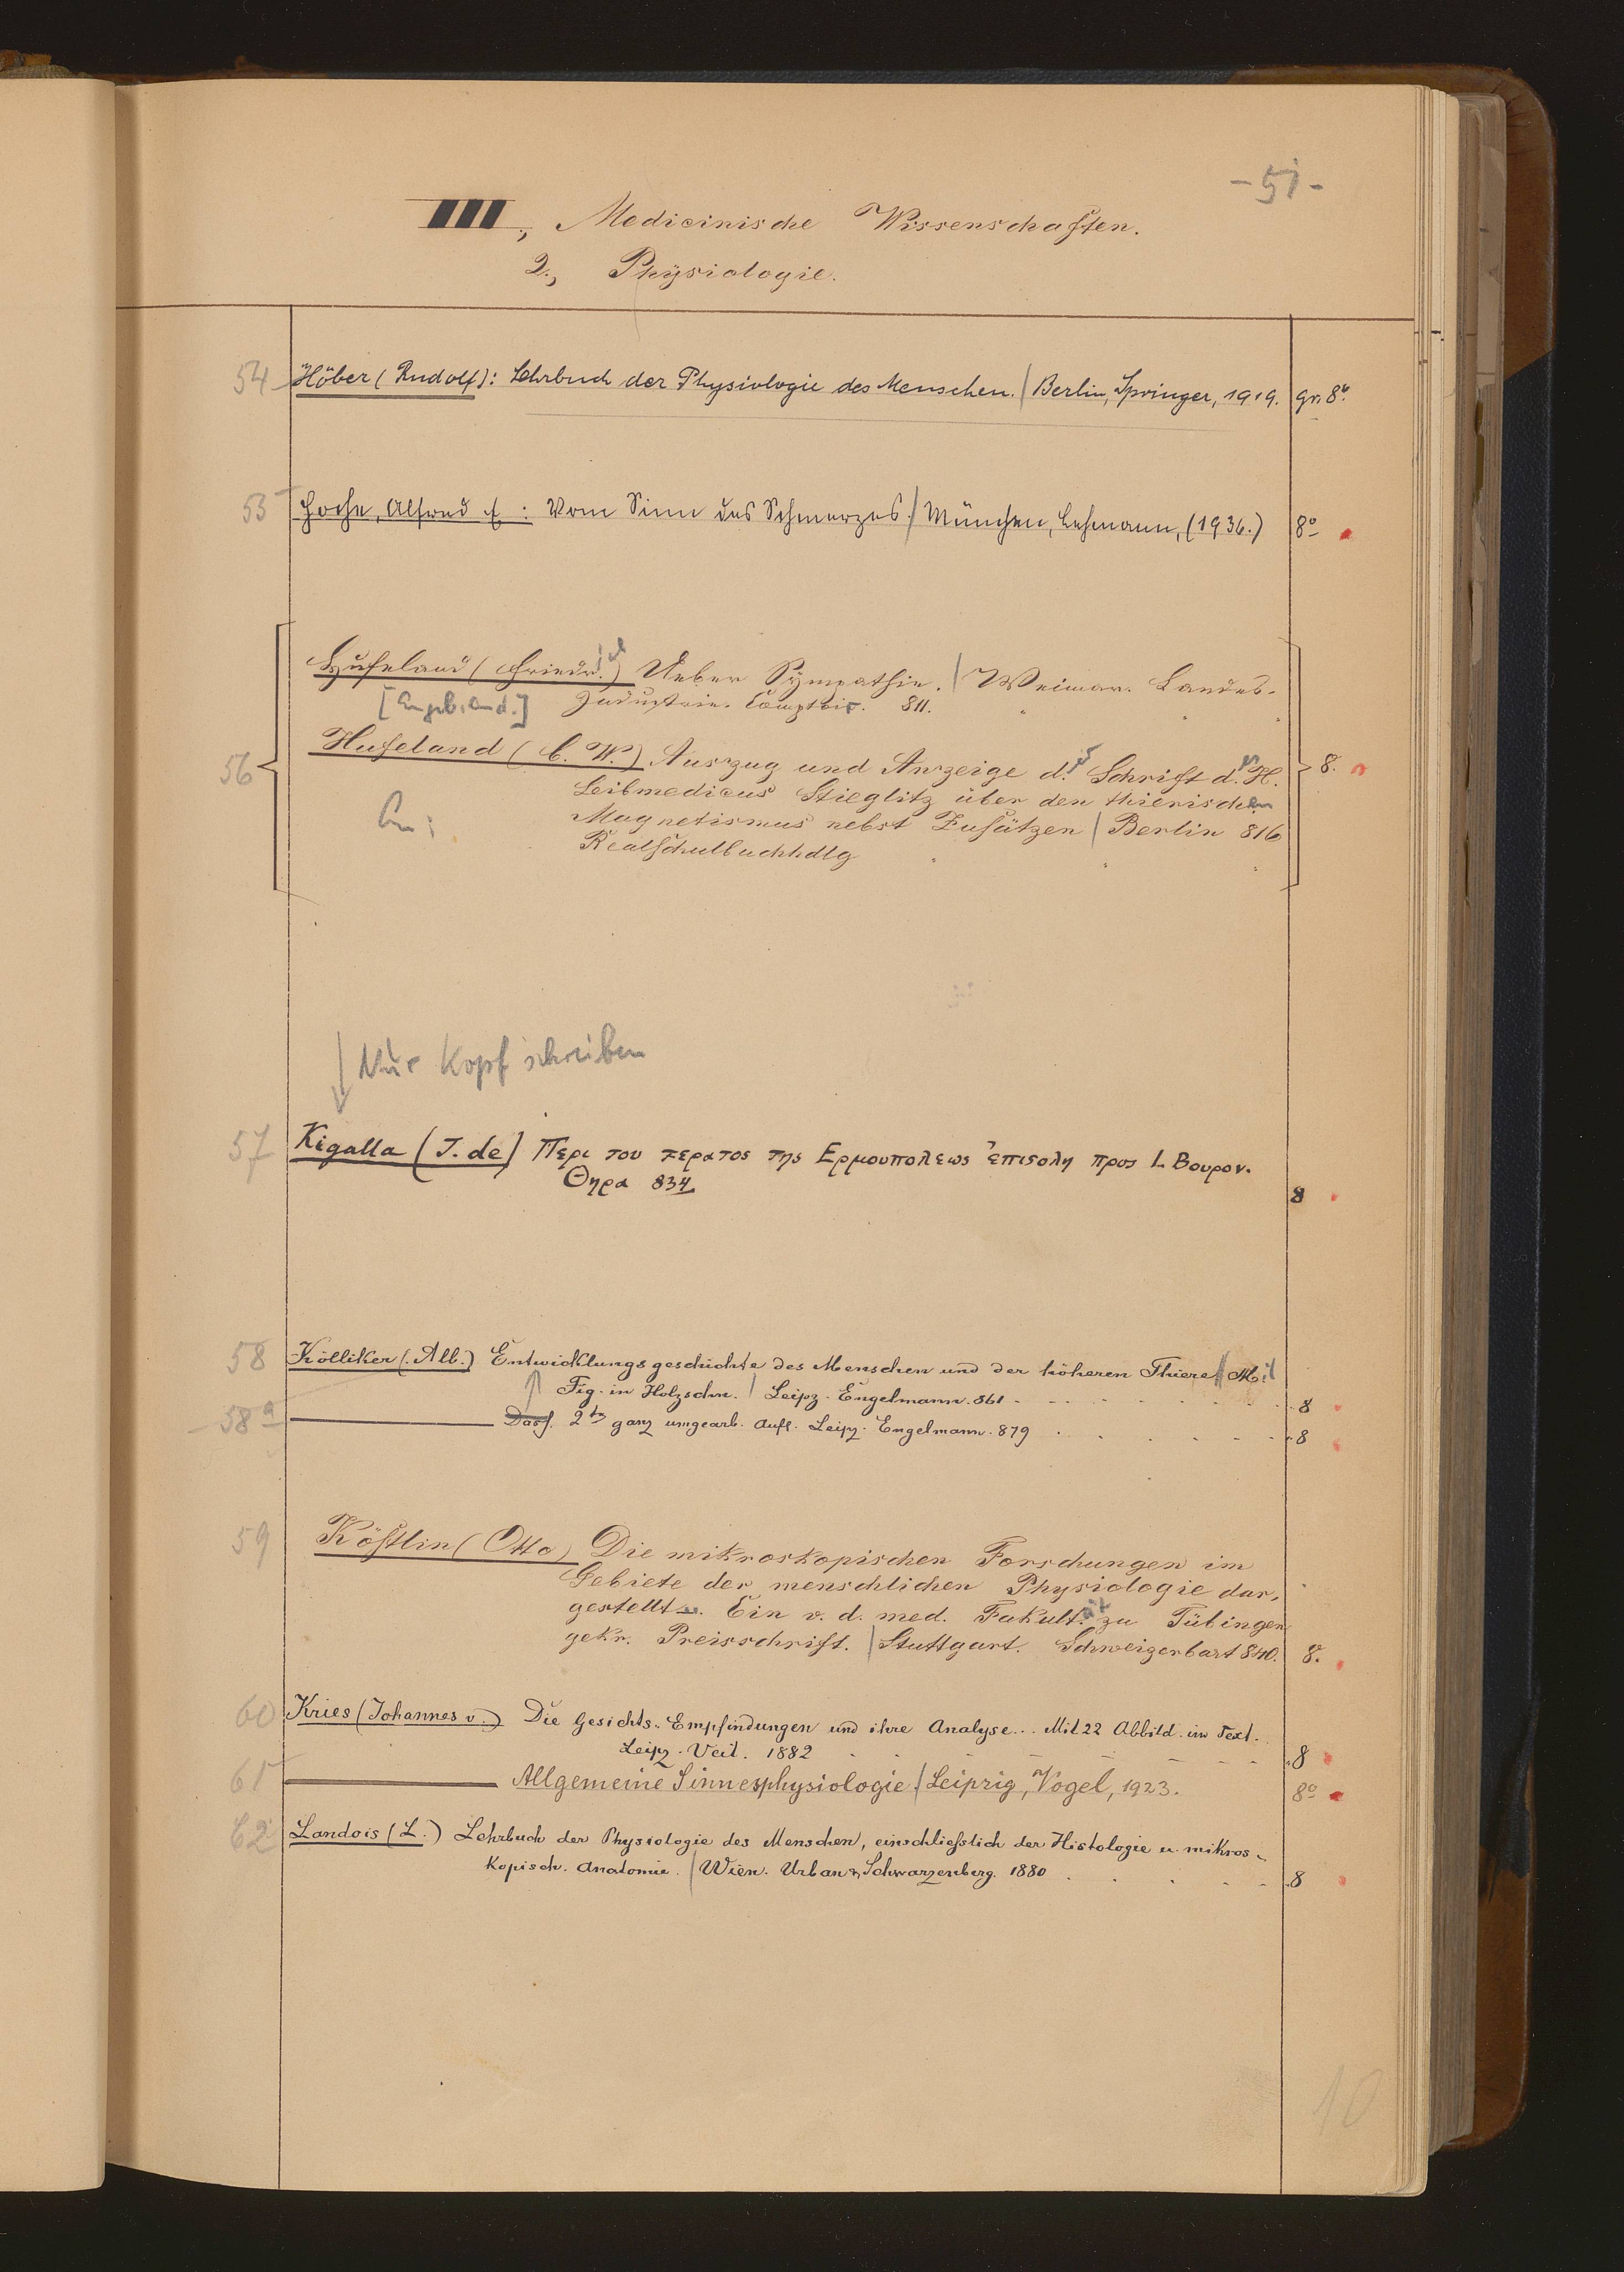 - 51 -
III., Medicinische Wissenschaften.
2., Physiologie.
54 Höber (Rudolf): Lehrbuch der Physiologie des Menschen. | Berlin, Springer, 1919. gr. 8°.
55 Hoche, Alfred E.: Vom Sinn des Schmerzes. | München, Lehmann, (1936.) 8°
Hufeland (Friedr.) Ueber Sympathie. | Weimar. Landes-
Industrie. Comptoir. 811.
56 Hufeland (C. W.) Auszug und Anzeige d. Schrift d. H. 8.
Leibmedicus Stieglitz über den thierischen
Magnetismus nebst Zusätzen | Berlin 816
Realschulbuchhdlg
Nur Kopf schreiben
57 Kigalla (J. de) Περι του τερατος της Ερμουπολεως ἐπιϛολη προς L. Βουρον.
Θηρα 834 8
58 Kölliker (Alb.) Entwicklungsgeschichte des Menschen und der höheren Thiere || Mit
Fig. in Holzschn. | Leipz. Engelmann. 861 8
58a Dass. 2te ganz umgearb. Aufl. Leipz. Engelmann. 879 8
59 Köstlin (Otto) Die mikroskopischen Forschungen im
Gebiete der menschlichen Physiologie dar,
gestellt. Ein v. d. med. Fakultät zu Tübingen
gekr. Preisschrift. | Stuttgart. Schweizerbart 840. 8.
60 Kries (Johannes v.) Die Gesichts-Empfindungen und ihre Analyse... Mit 22 Abbild. im Text.
Leipz. Veit. 1882 8
61 Allgemeine Sinnesphysiologie. | Leipzig, Vogel, 1923. 8°
62 Landois (L.) Lehrbuch der Physiologie des Menschen, einschliesslich der Histologie u. mikros-
kopisch. Anatomie. | Wien. Urban & Schwarzenberg. 1880 8
10